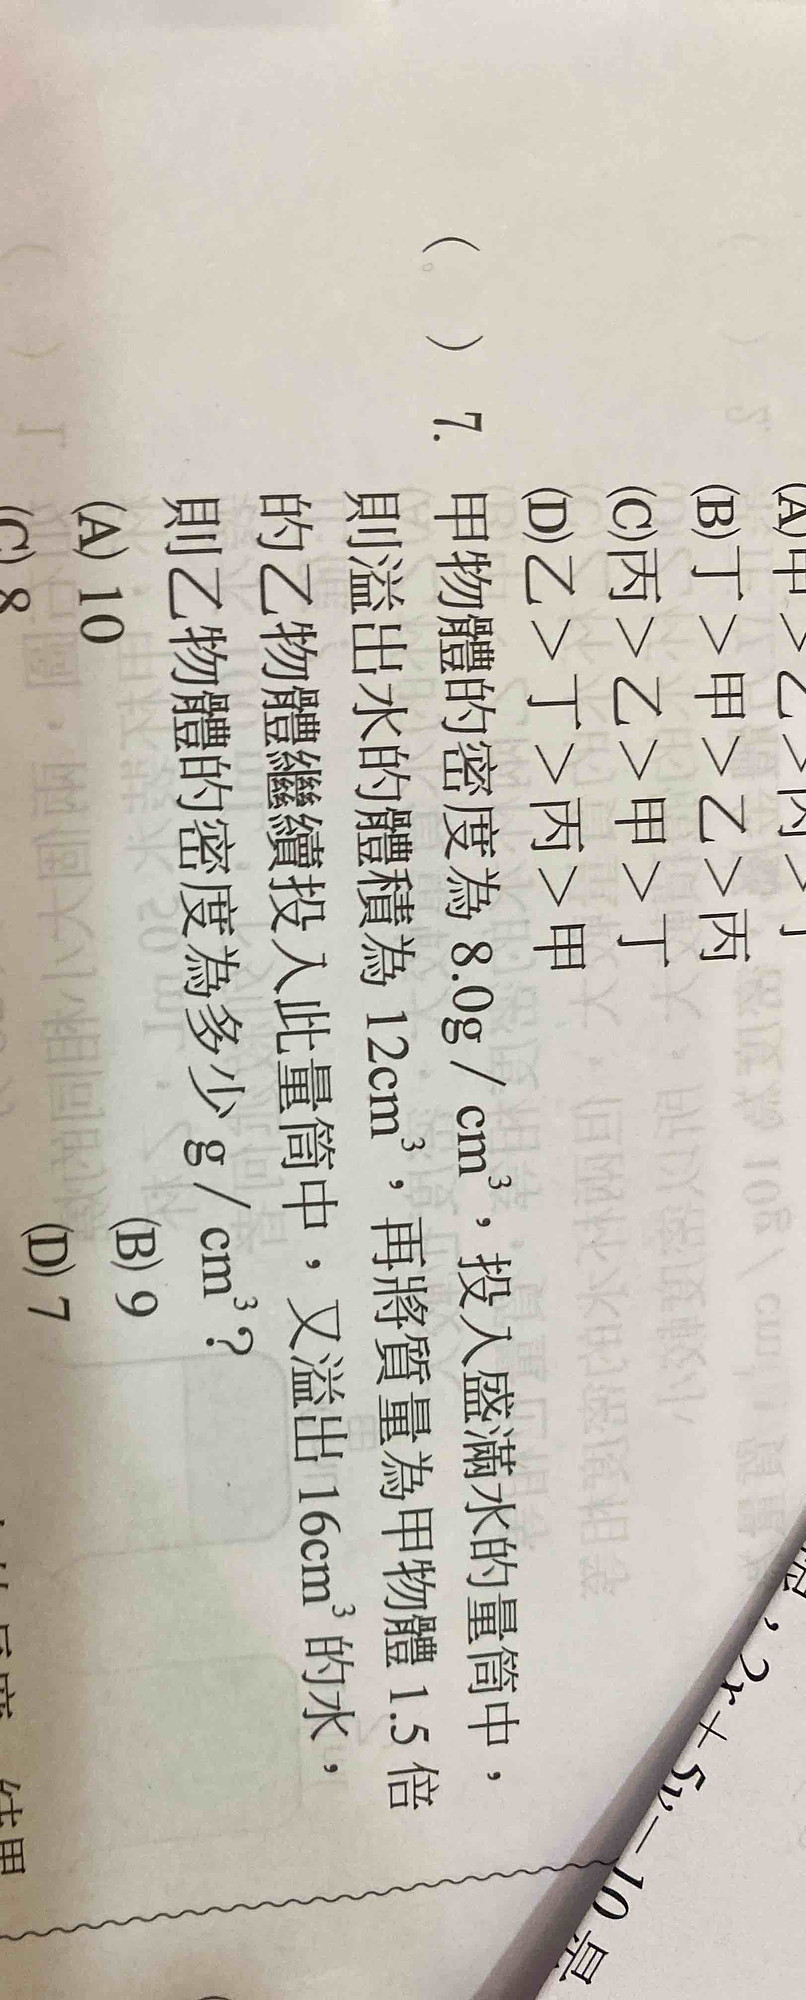 (A)甲＞乙＞丙＞丁
(B)丁＞甲＞乙＞丙
(C)丙＞乙＞甲＞丁
(D)乙＞丁＞丙＞甲
(　) 7. 甲物體的密度為 8.0g / cm³，投入盛滿水的量筒中，
則溢出水的體積為 12cm³，再將質量為甲物體 1.5 倍
的乙物體繼續投入此量筒中，又溢出 16cm³ 的水，
則乙物體的密度為多少 g / cm³？
(A) 10 (B) 9
(C) 8 (D) 7
，2x＋5y－10是